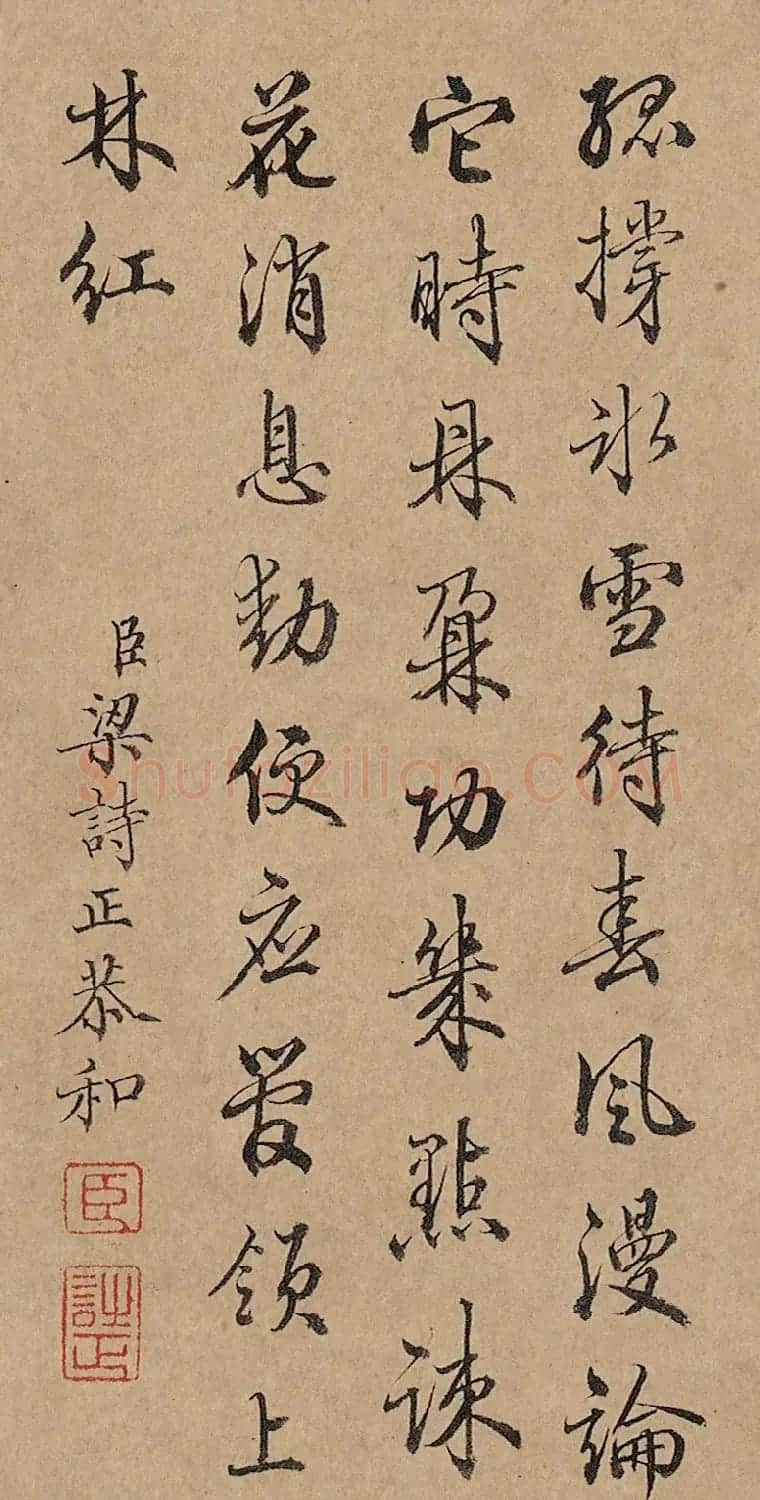 孤撐冰雪待春風漫論
它時鼎鼐功幾點疎
花消息動便應管領上
林紅
臣梁詩正恭和
臣
詩正
Shufaziliao.COM